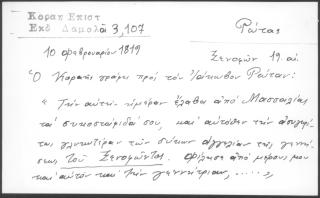 Κοραη Επιστ
Εκδ Δαμαλᾶ 3,107
Ρώτας
10 Φεβρουαρίου 1819
Ξενοφῶν 19 αι.
Ὁ Κοραῆς γράφει πρὸς τὸν Ἰάκωβον Ρώταν:
« Τὴν αὐτὴν ἡμέραν ἔλαβα ἀπὸ Μασσαλίας
τὰ συκοσταφιδά σου, καὶ αὐτόθεν τὴν
γλυκυτέραν τῶν σύκων ἀγγελίαν τῆς γεννή-
σεως τοῦ Ξενοφῶντος. Φίλησε ἀπὸ μέρους μου
καὶ αὐτὸν καὶ τὴν γεννήτριαν, .....»